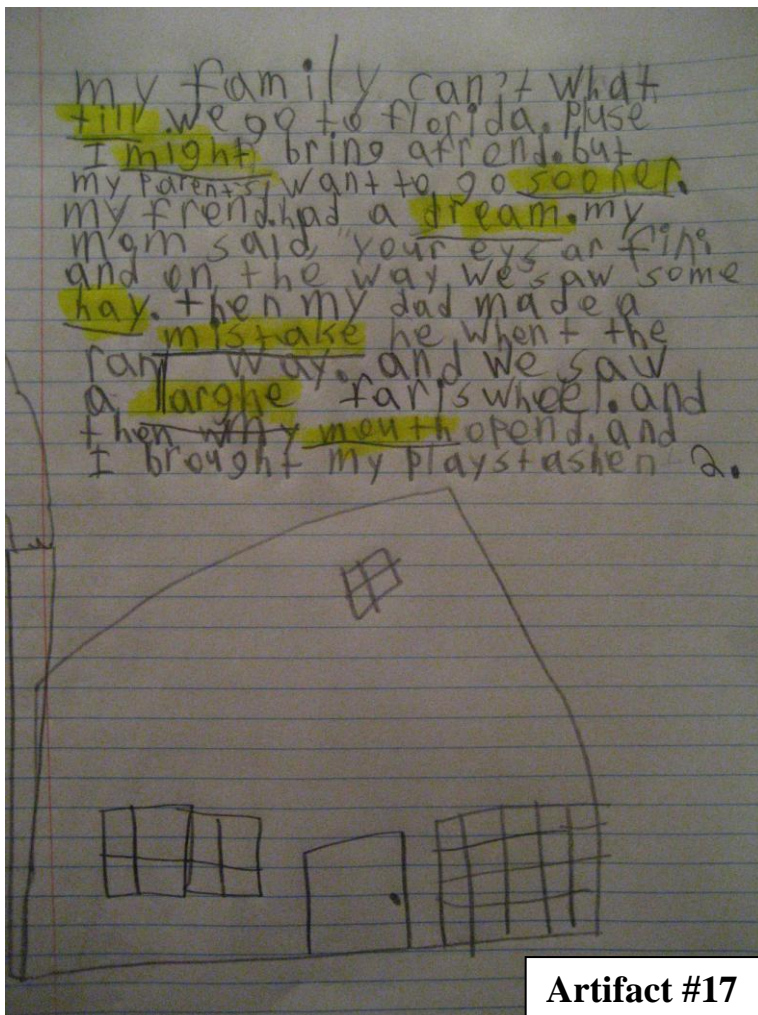 my family can't what
till we go to florida. Pluse
I might bring a frend. but
my parents, want to go sooner.
my frend. had a dream. my
mom said, "your eys ar fini
and on the way we saw some
hay. then my dad made a
mistake he when t the
ran way. and we saw
a larghe faris wheel. and
then my mouth opend. and
I brought my playstashen 2.
Artifact #17